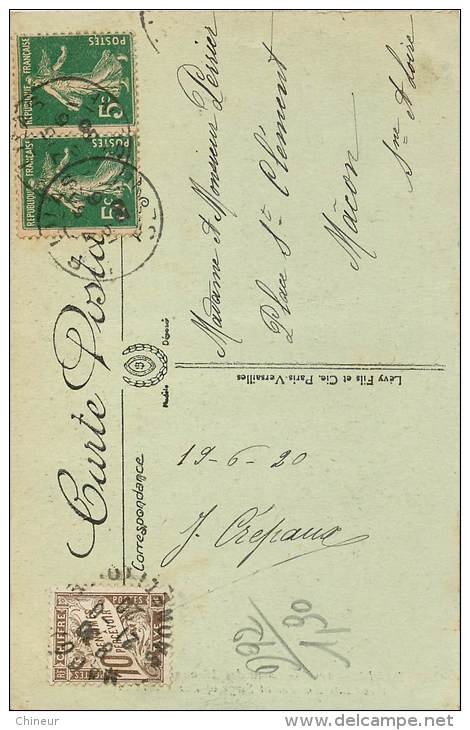 Carte Postale
Correspondance
Modèle Déposé
RÉPUBLIQUE FRANÇAISE
POSTES
5c
RÉPUBLIQUE FRANÇAISE
POSTES
5c
CHIFFRE TAXE
10
CENTIMES
À PERCEVOIR
POSTES
19-6-20
J. Crépaux
Madame et Monsieur Perrier
Place St Clément
Mâcon
Sne et Loire
Lévy Fils et Cie. Paris-Versailles
692
1,30
Chineur
© delcampe.net